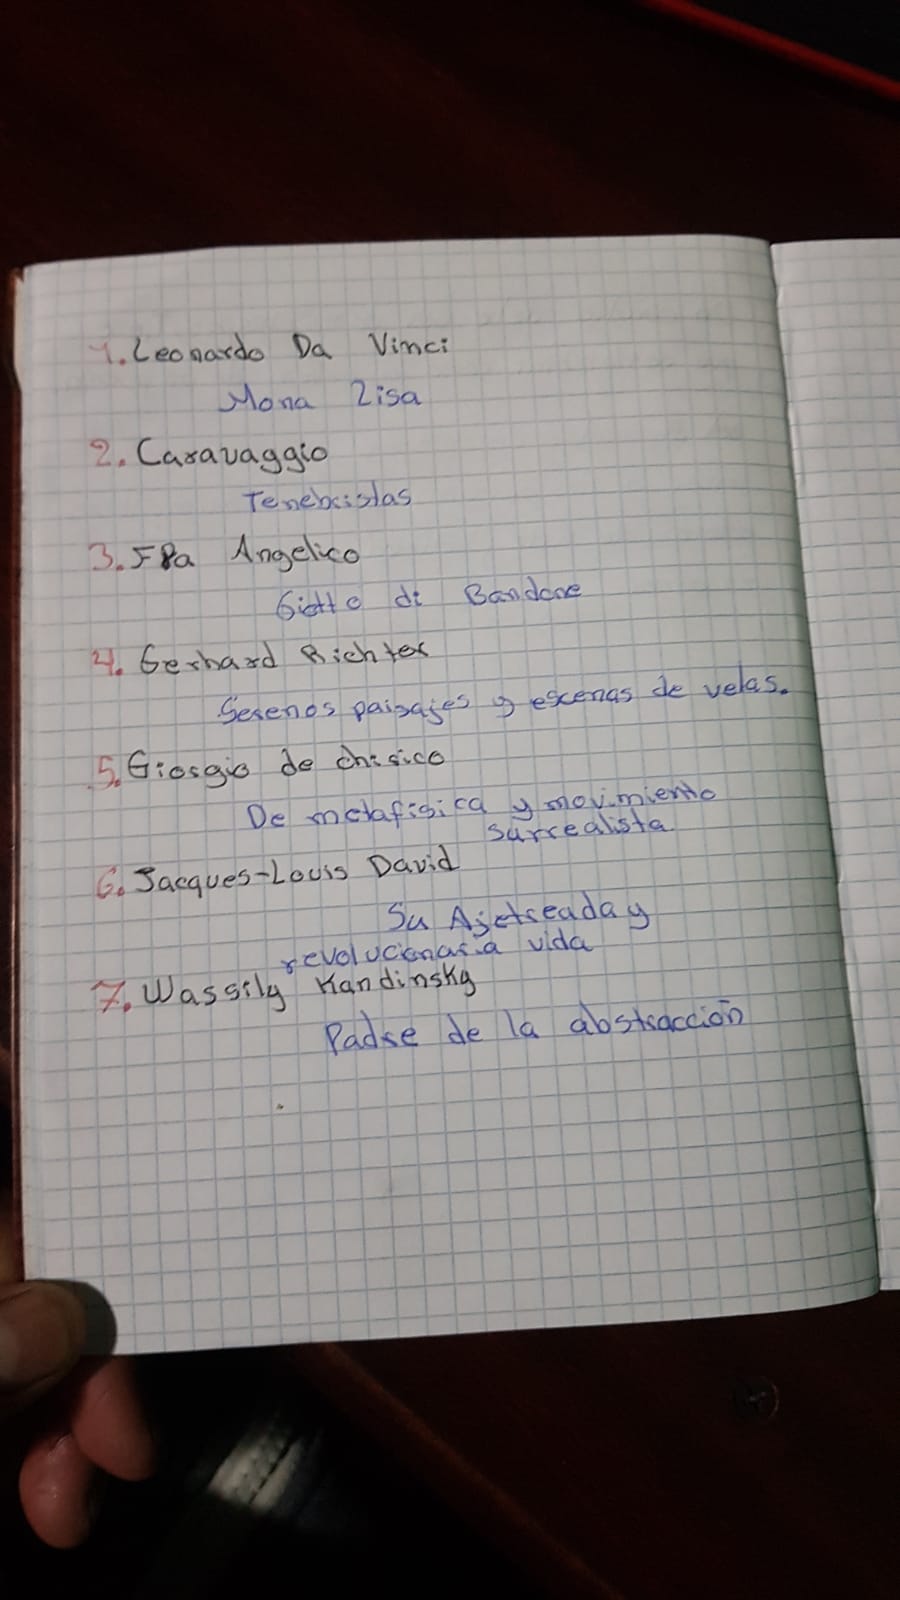 1. Leonardo Da Vinci
Mona Lisa
2. Caravaggio
Tenebristas
3. FRa Angelico
Giotto di Bandone
4. Gerhard Richter
Serenos paisajes y escenas de velas.
5. Giorgio de chirico
De metafisica y movimiento
surrealista
6. Jacques-Louis David
Su Ajetreada y
revolucionaria vida
7. Wassily Kandinsky
Padre de la abstracción